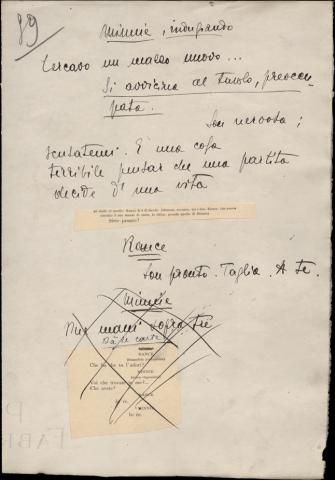 89
Minnie, indugiando
Cercavo un mazzo nuovo...
Si avvicina al tavolo, preoccu-
pata.
Son nervosa;
scusatemi. È una cosa
terribile pensar che una partita
decide d'una vita
Siete pronto?
Rance
Son pronto. Taglia. A te.
Minnie
Due mani sopra tre
Dà le carte
RANCE
Che ha che tu l'adori?
MINNIE
Voi che trovate in me?...
Che avete?
RANCE
Io re.
MINNIE
Io re.